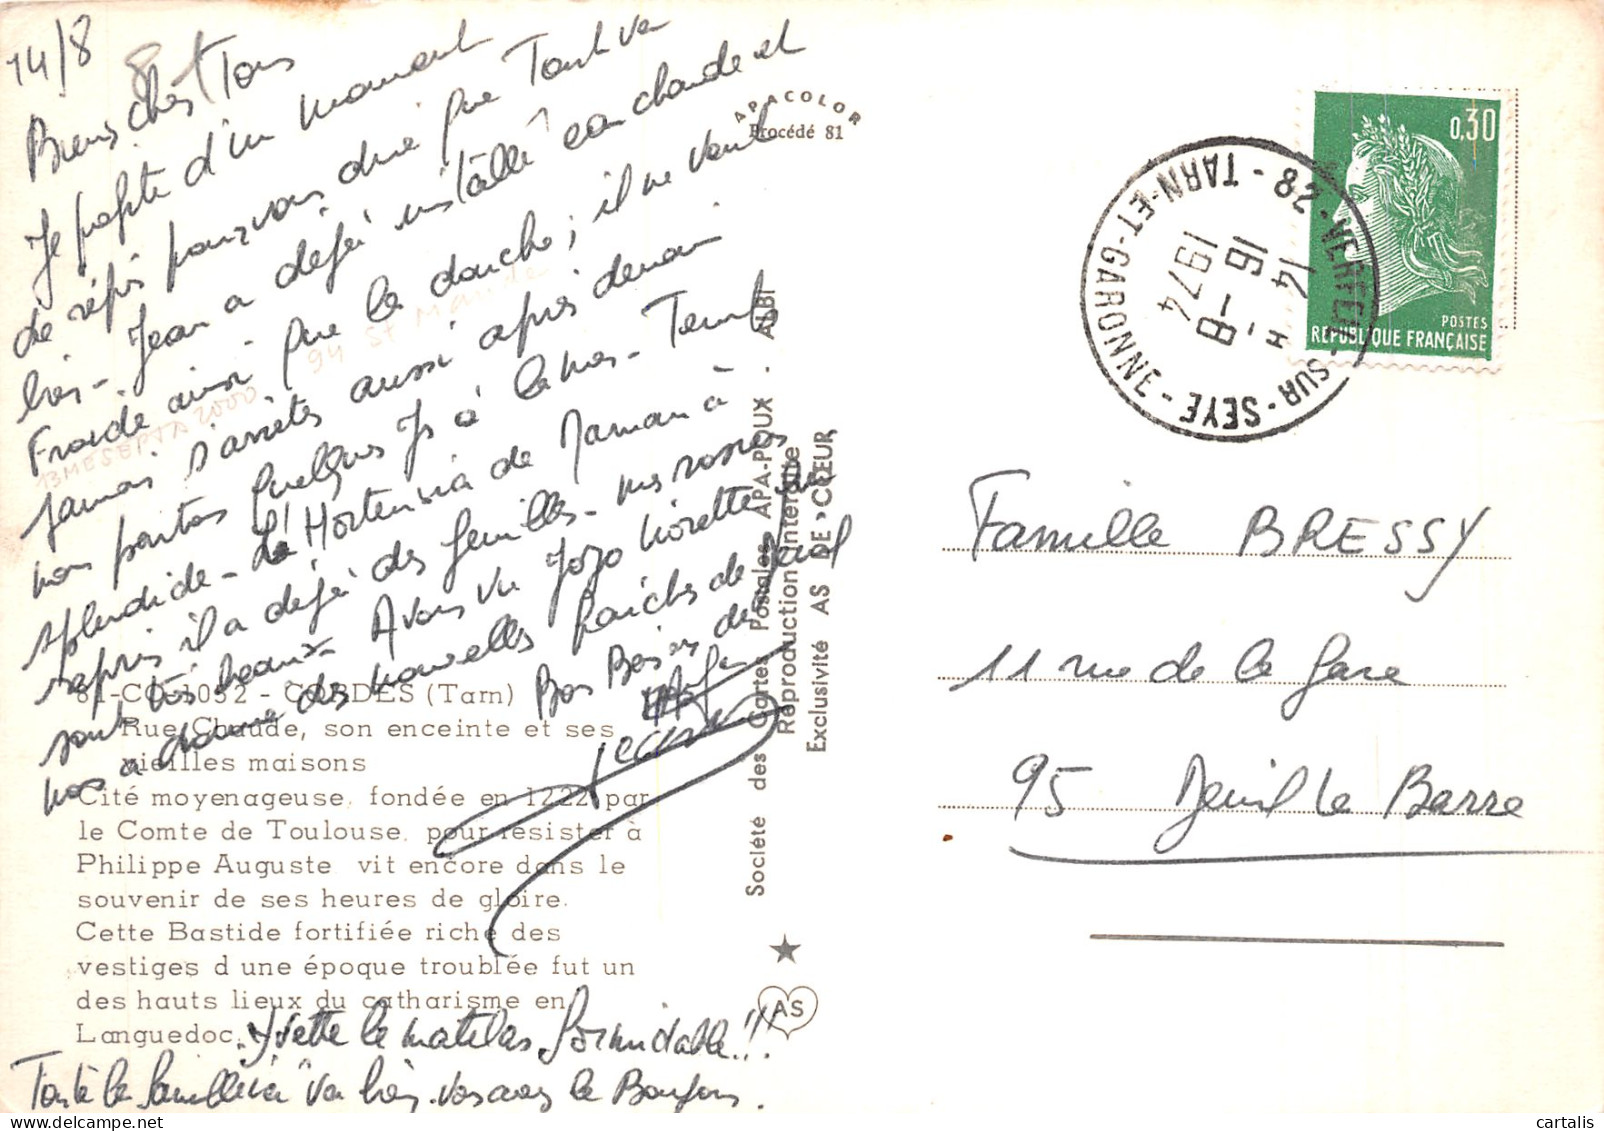 14/8
Biens chers Tous
Je profite d'un moment
de répit pour vous dire que Tout va
bien - Jean a déjà installé eau chaude et
Froide ainsi que la douche ; il ne veut
jamais s'arrêter aussi après demain
nous partons quelques Js à Cahors - Temps
splendide - L'Hortensia de Maman à
repris il a déjà des feuilles - mes rosiers
sont très beaux - Avons vu Jojo Mirette
nous a donné des nouvelles fraîches de
Bos Baisers de
Jean
Yvette le matelas formidable !!!
Toute la famille va bien. Vous avez le Bonjour.
13MESEPTA2000
94 St Mande
81-CO-1052 - CORDES (Tarn)
Rue Chaude, son enceinte et ses
vieilles maisons
Cité moyenageuse, fondée en 1222 par
le Comte de Toulouse, pour résister à
Philippe Auguste vit encore dans le
souvenir de ses heures de gloire.
Cette Bastide fortifiée riche des
vestiges d une époque troublée fut un
des hauts lieux du catharisme en
Languedoc.
APACOLOR
Procédé 81
Société des Cartes Postales APA-POUX ALBI
Reproduction interdite
Exclusivité AS DE CŒUR
AS
28 - VERFEIL-SUR-SEYE - TARN-ET-GARONNE
16 H
14 - 8
1974
0,30
POSTES
REPUBLIQUE FRANÇAISE
Famille BRESSY
11 rue de la Gare
95 Deuil la Barre
cartalis | delcampe.net